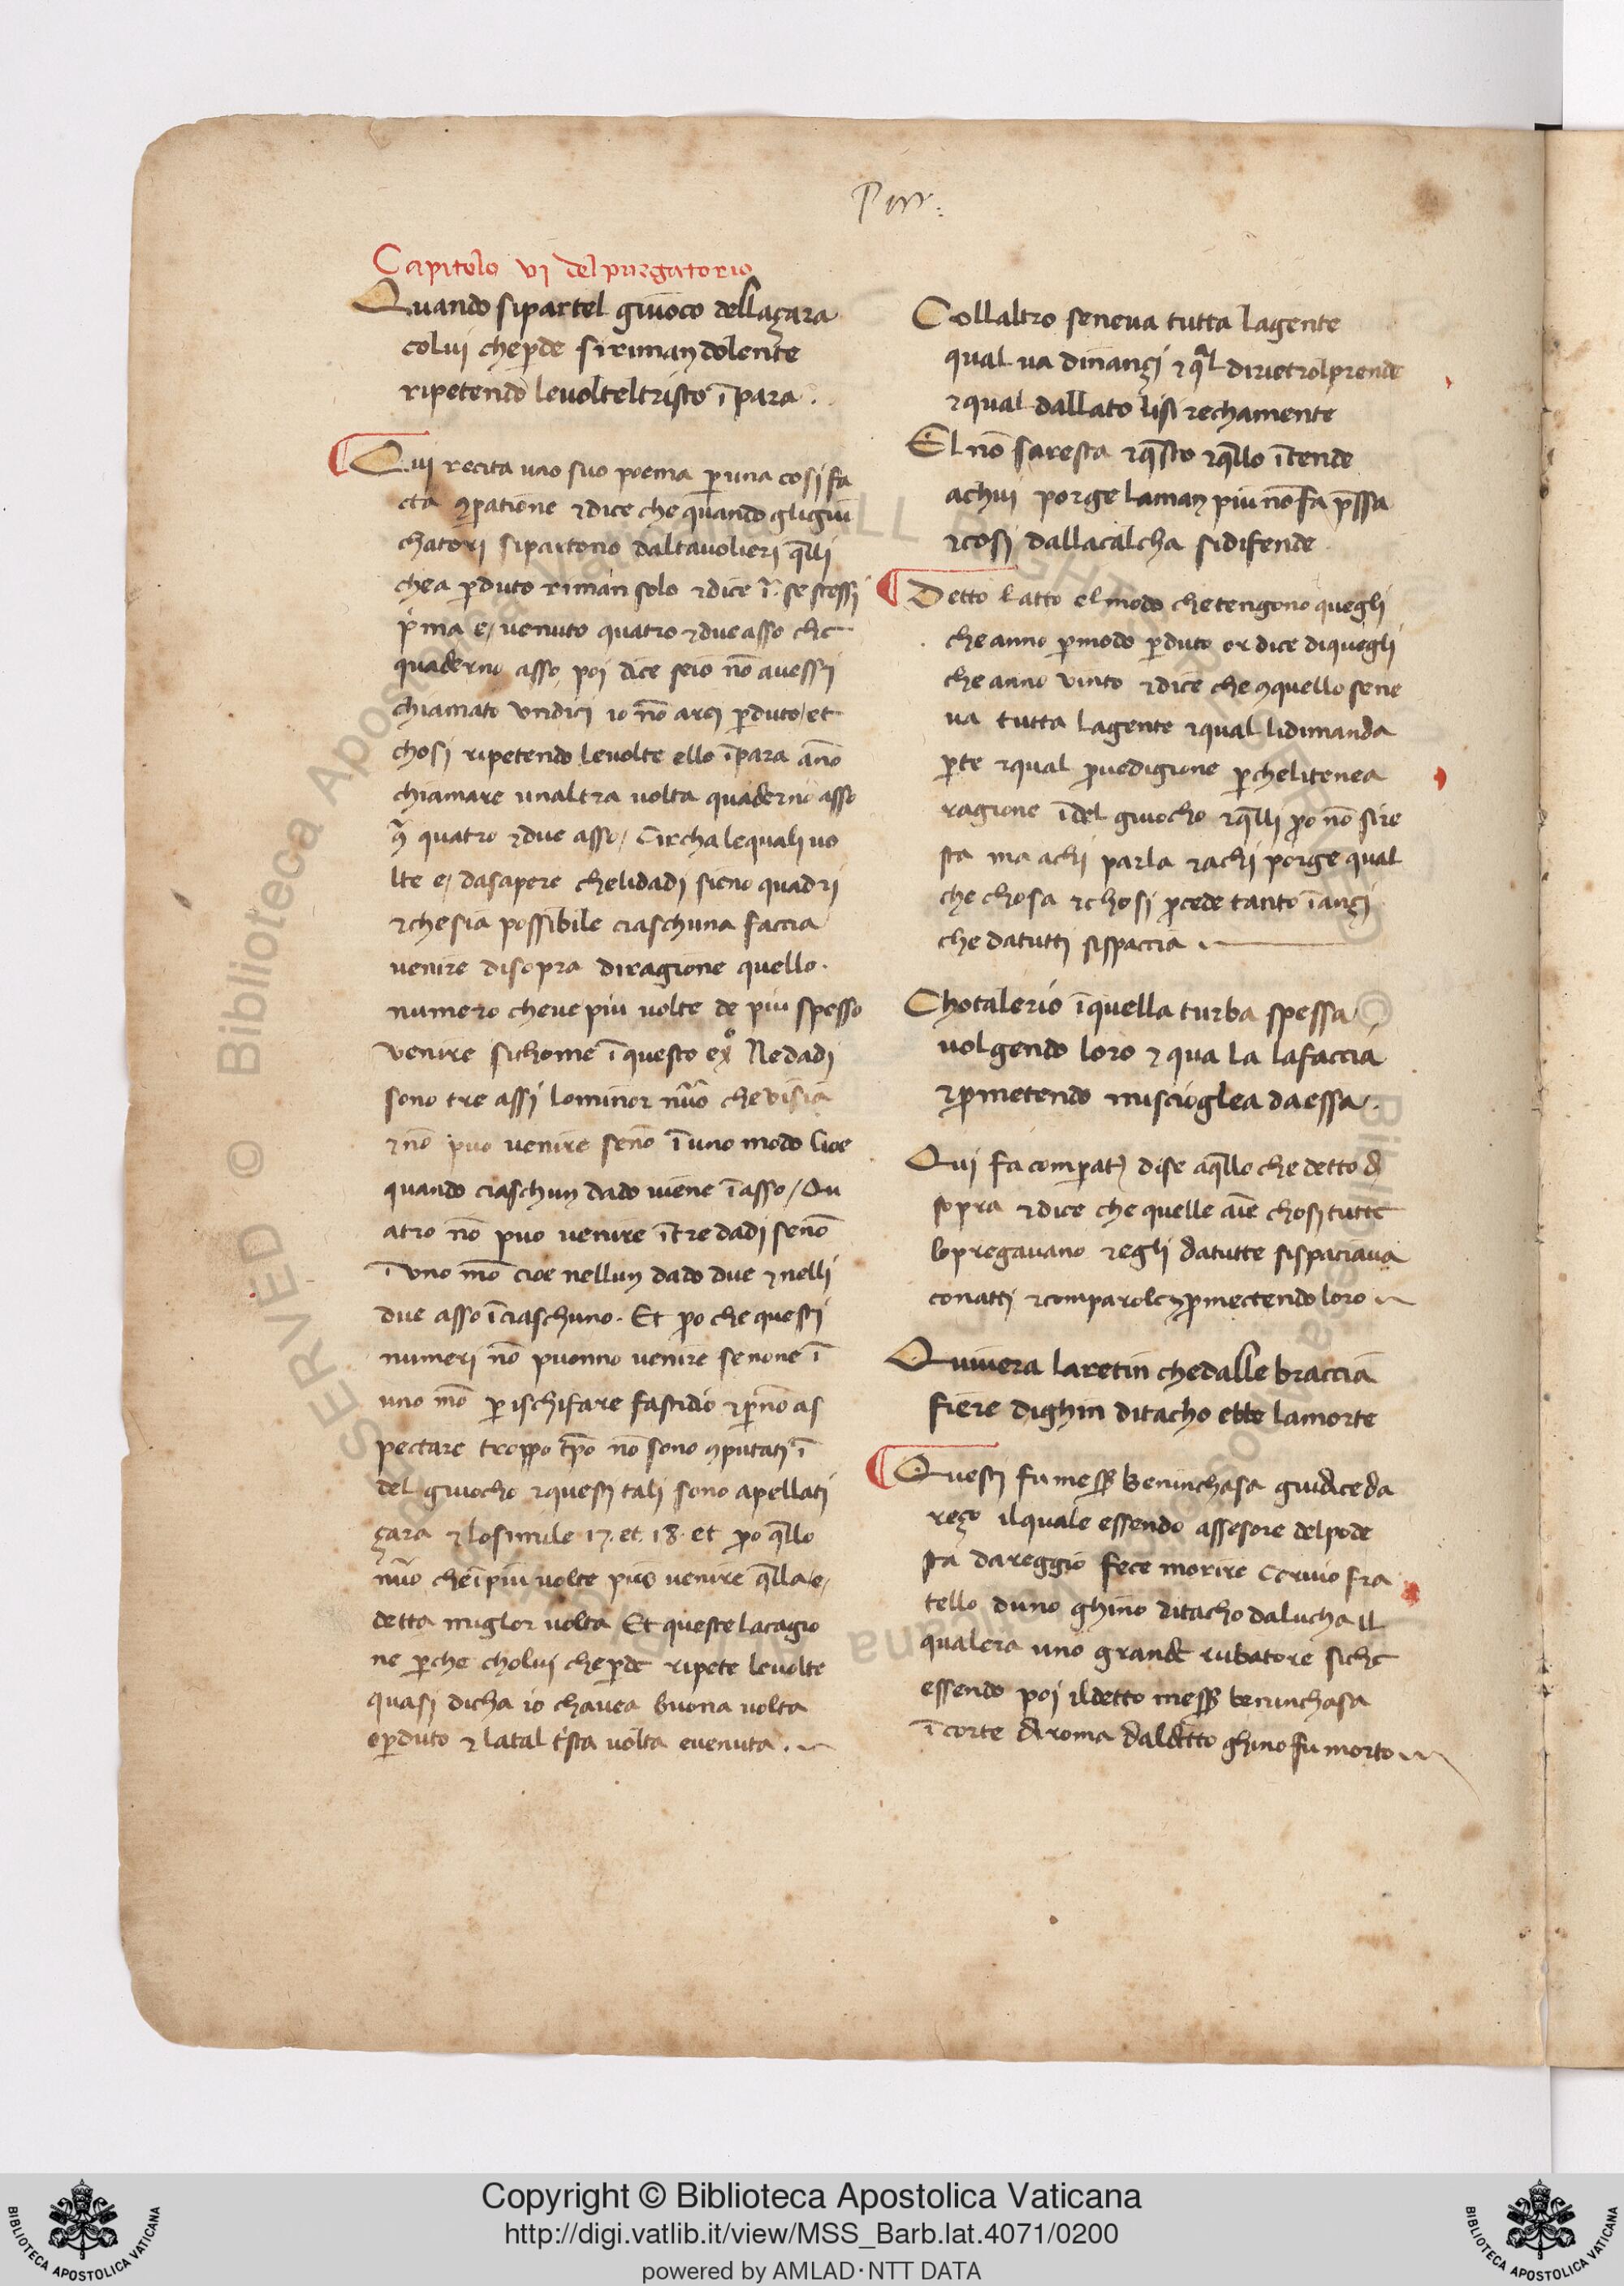 Pur:
Capitolo vi del purgatorio
Quando sipartel giuoco dellaçara
colui cheꝑde siriman dolente
ripetendo leuolteltristo ĩpara.
Qui recita uno suo poema ꝑuna cosi fa
cta ꝯꝑatione ⁊dice che quando gligiu
chatori sipartono daltauolieri q̃lli
chea ꝑduto riman solo ⁊dice ĩ se stessj
p̃ma e/ venuto quatro ⁊due asso che
quaderno asso, poi dice seio nõ auessi
chiamato vndici io nõ arei ꝑduto/et
chosi ripetendo leuolte ello ĩpara anõ
chiamare unaltra uolta quaderno asso
quatro ⁊due asso/ Circha lequali uo
lte e/ dasapere chelidadi sieno quadri
⁊chesia possibile ciaschuna faccia
uenire disopra diragione quello.
numero cheue piu uolte de piu spesso
venire sichome ĩquesto exº Nedadi
sono tre assi lominor nũo chevisia
⁊nõ puo uenire senõ ĩuno modo cioe
quando ciaschun dado uiene ĩasso/Qu
atro nõ puo uenire ĩtre dadi senõ
ĩ vno mõ cioe nellun dado due ⁊nelli
due asso ĩciaschuno. Et ꝑo che questi
numeri nõ puonno uenire senone ĩ
uno mõ ꝑ ischifare fastidio ⁊ꝑnõ as
pectare troppo tẽpo nõ sono ꝯputati ĩ
del giuocho ⁊questi tali sono apellati
çara ⁊ losimile 17. et. 18. et ꝑo q̃llo
nũo cheĩpiu uolte puo uenire q̃lla e/
detta miglor uolta Et queste lacagio
ne ꝑche cholui cheꝑde ripete leuolte
quasi dicha io chauea buona uolta
oꝑduto ⁊ latal t'sta uolta euenuta.
Collaltro seneua tutta lagente
qual ua dinançi ⁊ q̃l dirietrolprende
⁊qual dallato lisi rechamente
El nõ saresta ⁊q̃sto ⁊q̃llo ĩtende
achui porge laman piu nõ fa p̃ssa
⁊cosi dallacalcha sidifende
Detto latto elmodo chetengono quegli
che anno ꝑmodo ꝑduto or dice diquegli
che anno vinto ⁊dice che ꝯquello sene
ua tutta lagente ⁊qual lidimanda
ꝑte ⁊qual ꝓuedigione ꝑchelitenea
ragione ĩdel giuocho ⁊q̃lli ꝑo nõ sire
sta ma achi parla ⁊achi porge qual
che chosa ⁊chosi ꝓcede tanto ĩançi
che datutti sispaccia.
Chotalerio ĩquella turba spessa
uolgendo loro ⁊ qua la lafaccia
⁊ꝓmetendo miscioglea daessa.
Qui fa comꝑat disе aq̃llo che detto di
sopra ⁊dice che quelle aĩe chosi tutte
lopregauano ⁊egli datutte sispaciaua
conatti ⁊comparole ꝯꝓmectendo loro
Quiuera laretin chedalle braccia
fiere dighin ditacho ebbe lamorte
Questi fu messer beninchasa giudiceda
reço ilquale essendo assesore delpode
sta dareggio fece morire Ceruio fra
tello duno ghino ditacho dalucha il
qualera uno grande rubatore siche
essendo poi ildetto messer beninchasa
ĩ corte diroma daldetto ghino fu morto
Copyright © Biblioteca Apostolica Vaticana
http://digi.vatlib.it/view/MSS_Barb.lat.4071/0200
powered by AMLAD·NTT DATA
BIBLIOTECA APOSTOLICA VATICANA
BIBLIOTECA APOSTOLICA VATICANA